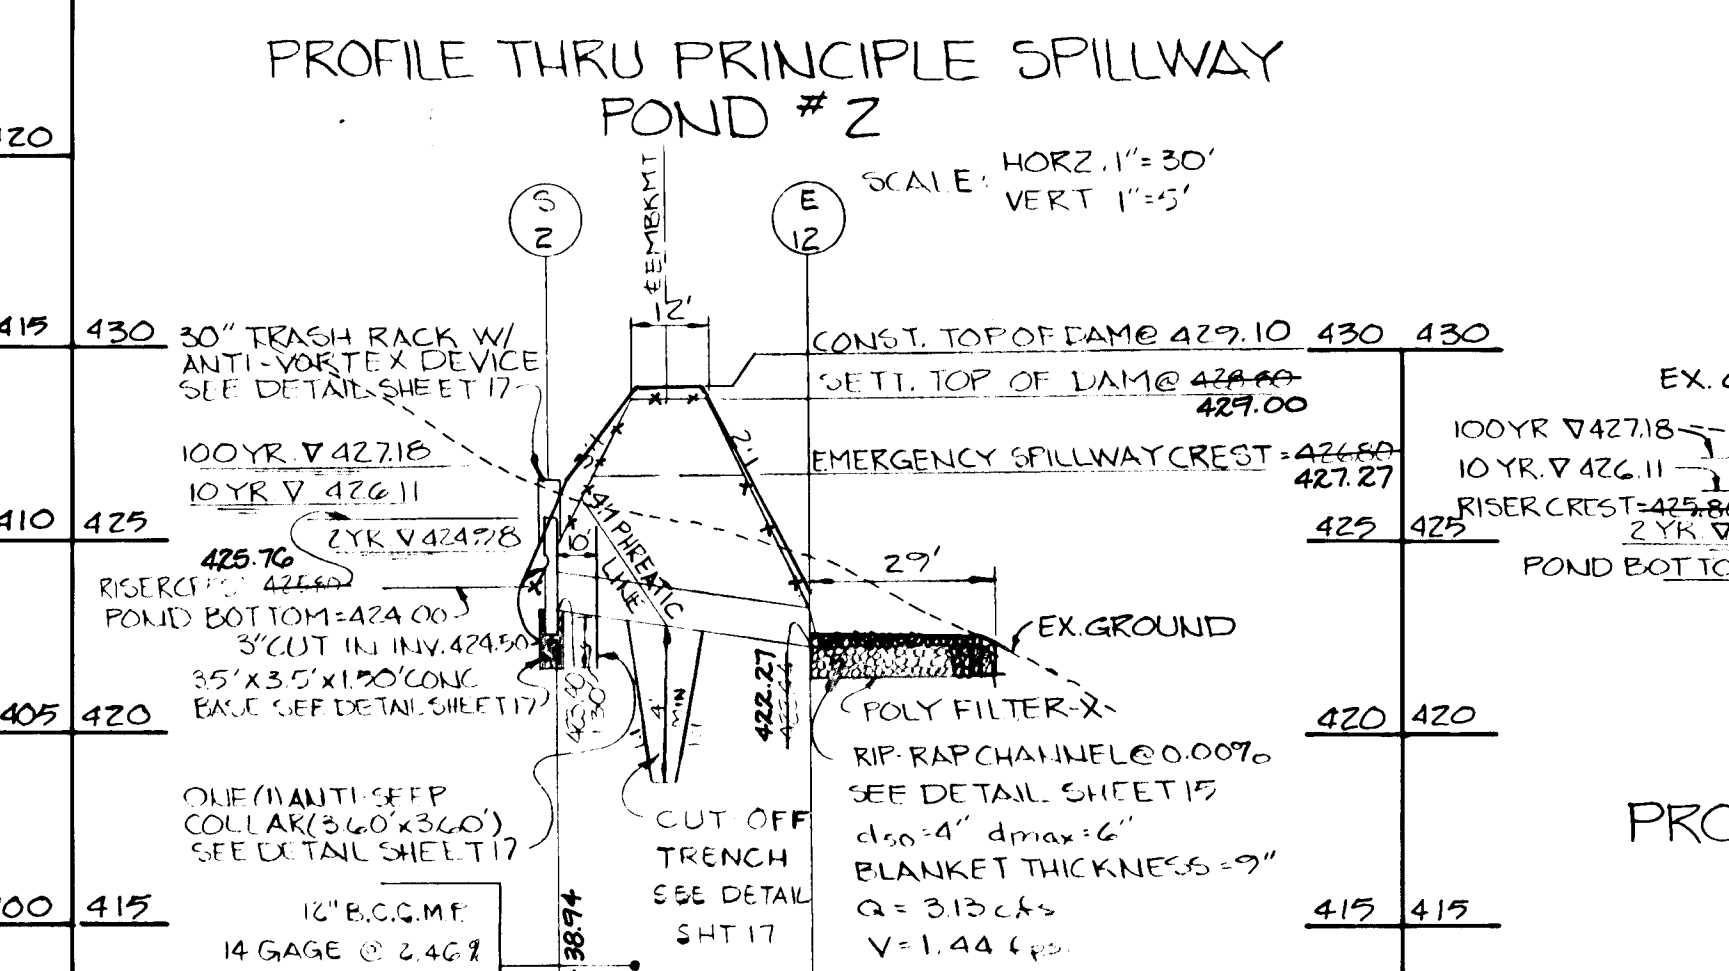 PROFILE THRU PRINCIPLE SPILLWAY
POND # 2
SCALE: HORZ. 1"=30'
VERT 1"=5'
S
2
E
12
₠ EMBKMT
12'
20
415
430
410
425
405
420
00
415
30" TRASH RACK W/
ANTI-VORTEX DEVICE
SEE DETAIL SHEET 17
100 YR. ∇ 427.18
10 YR ∇ 426.11
2 YR ∇ 424.98
425.76
POND BOTTOM=424.00
3" CUT IN INV. 424.50
3.5'X3.5'X1.50' CONC
BASE SEE DETAIL SHEET 17
ONE (1) ANTI-SEEP
COLLAR (3.60'x3.60')
SEE DETAIL SHEET 17
12" B.C.C.M.P.
14 GAGE @ 2.46%
38.94
10'
4:1 PHREATIC
LINE
2:1
4'
MIN
CUT OFF
TRENCH
SEE DETAIL
SHT 17
422.27
CONST. TOP OF DAM @ 429.10
SETT. TOP OF DAM @ 428.80
429.00
EMERGENCY SPILLWAY CREST = 426.80
427.27
29'
EX. GROUND
POLY FILTER-X
RIP-RAP CHANNEL @ 0.00%
SEE DETAIL SHEET 15
d50=4" dmax=6"
BLANKET THICKNESS=9"
Q= 3.13 cfs
V=1.44 fps
430
430
425
425
420
420
415
415
EX.
100 YR ∇ 427.18
10 YR. ∇ 426.11
RISER CREST=425.80
2 YR ∇
POND BOTTO
PRO